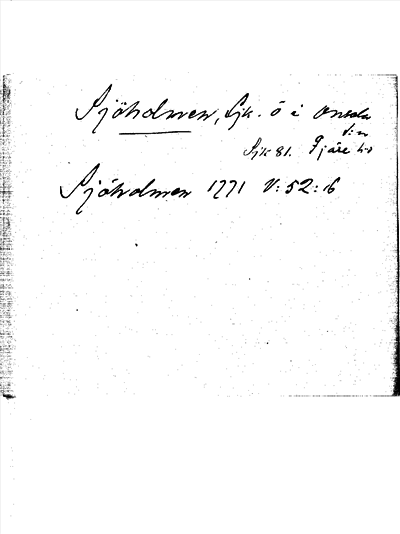 Sjöholmen, Sjk. ö i Onsala
s:n
Sjk 81. Fjäre hd
Sjöholmen 1771 V:52:16